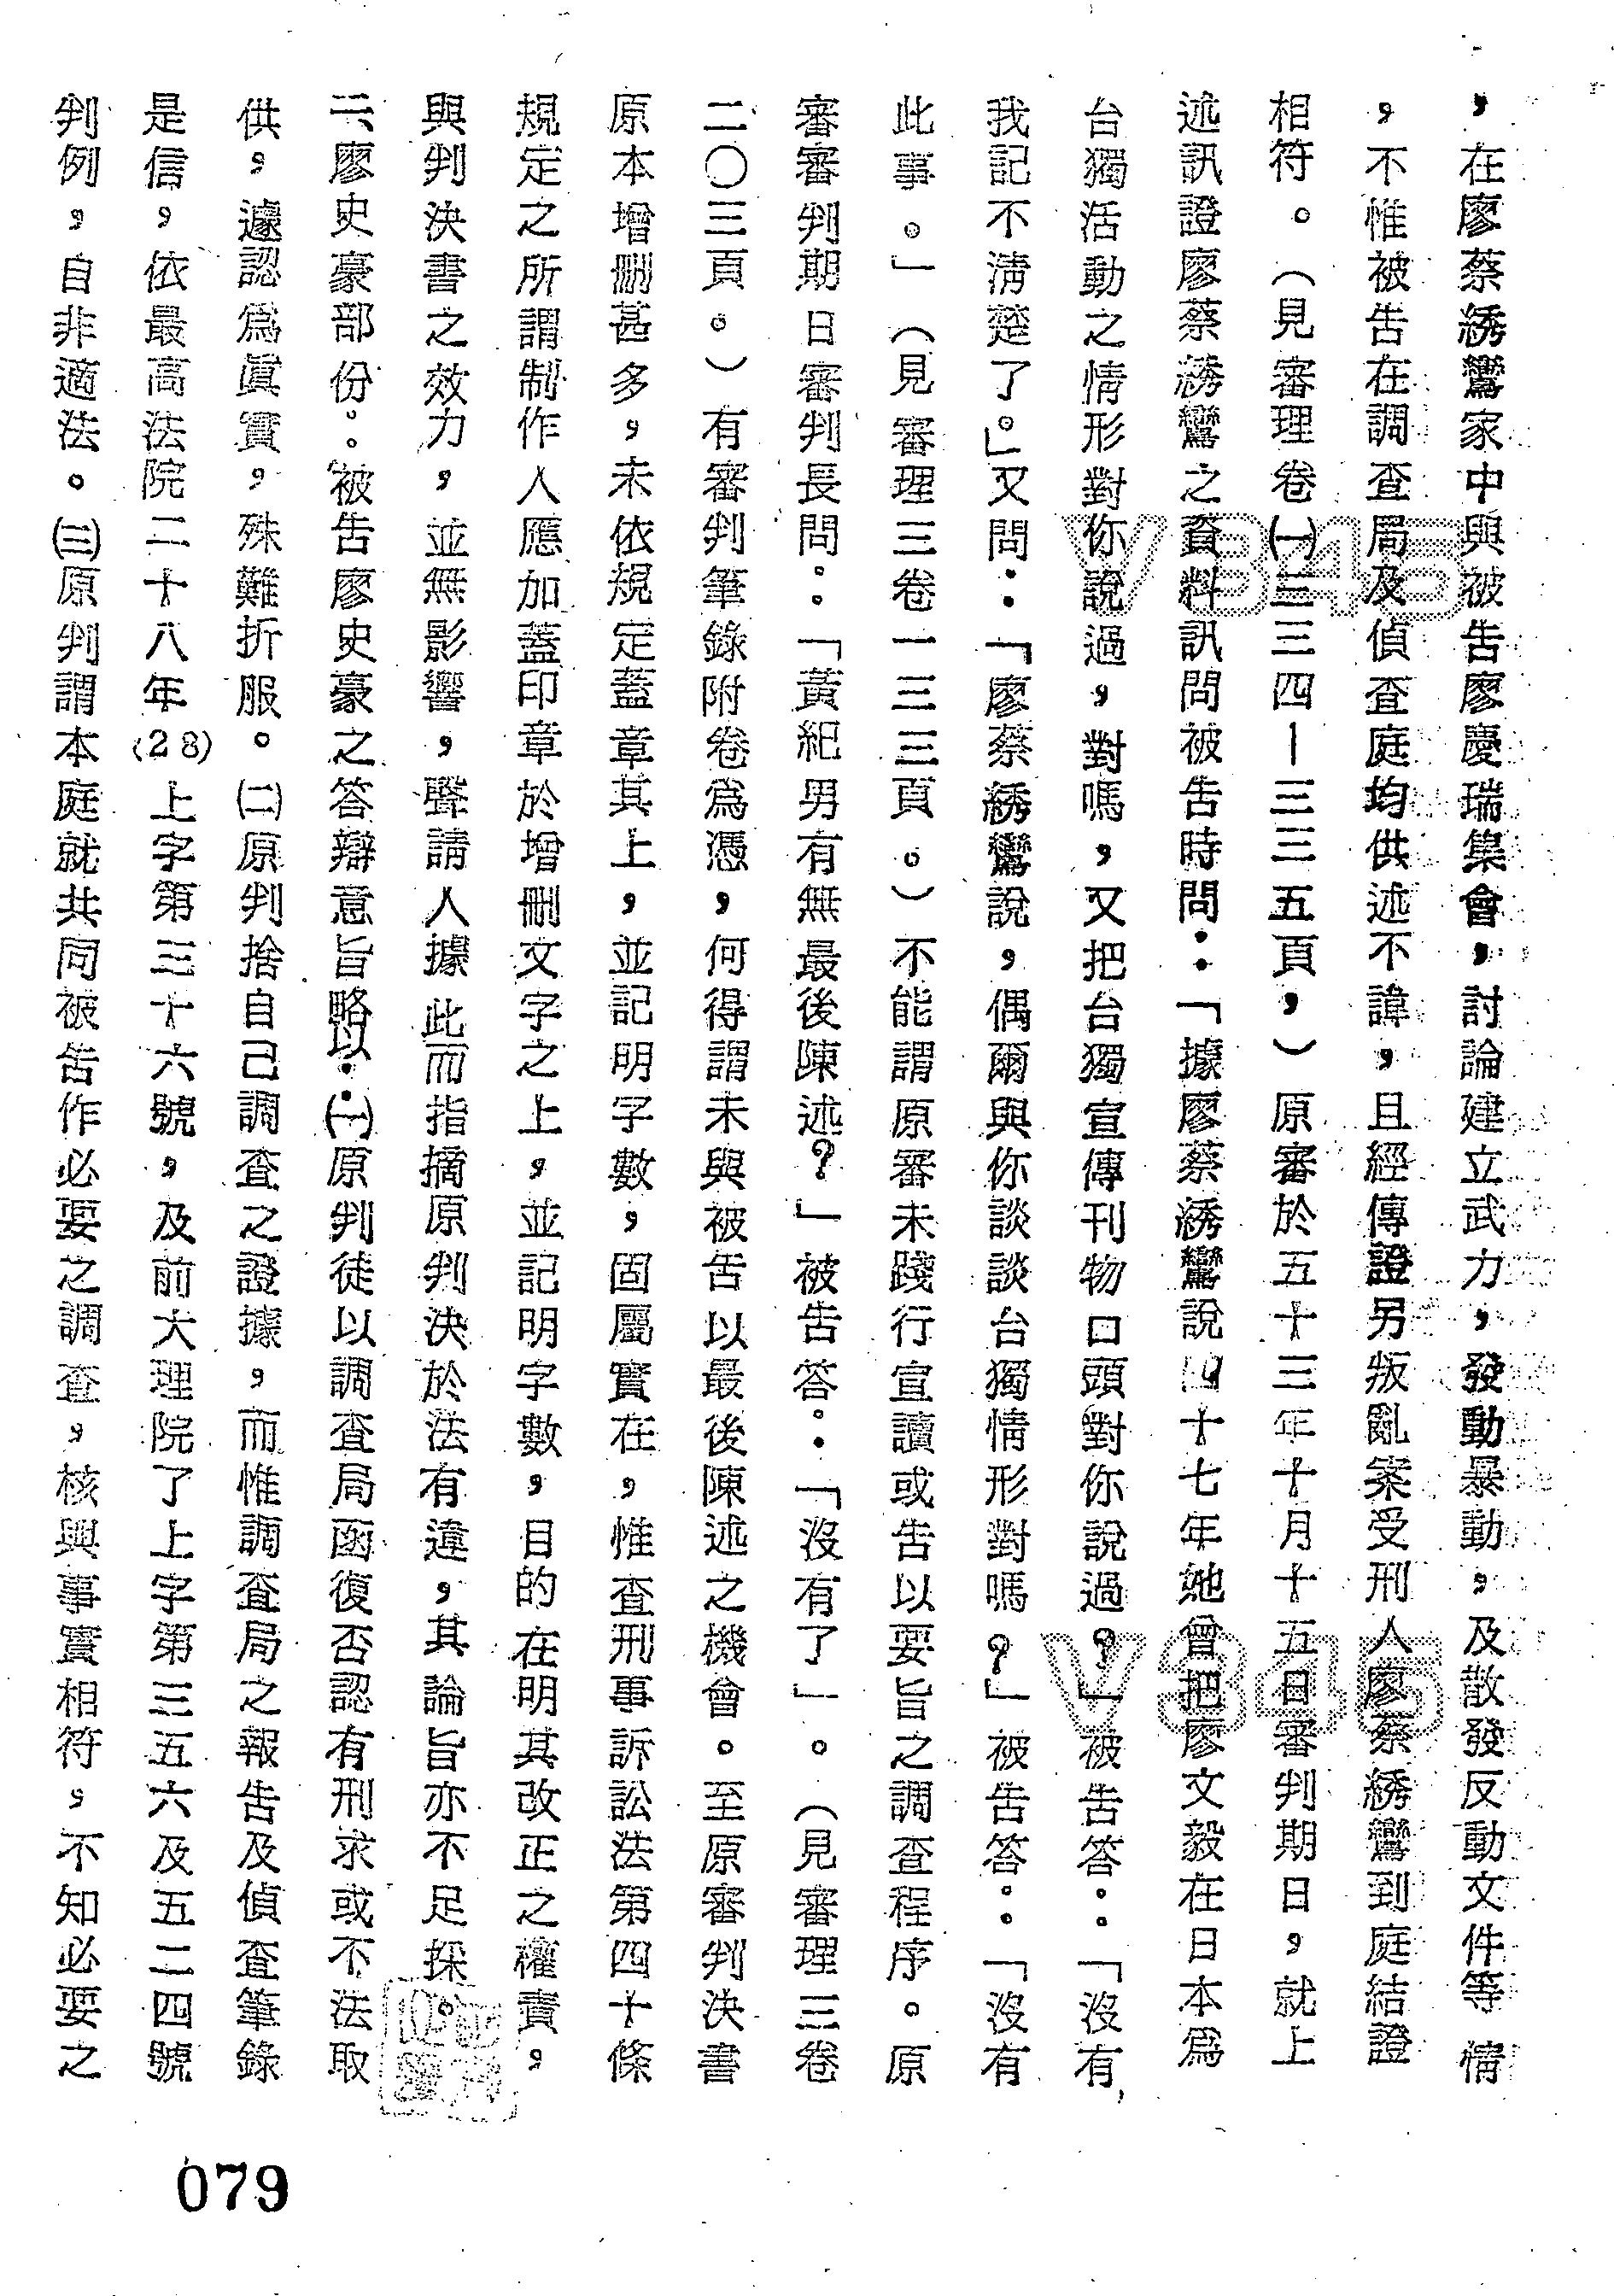 ，在廖蔡綉鸞家中與被告廖慶瑞集會，討論建立武力，發動暴動，及散發反動文件等情
，不惟被告在調查局及偵查庭均供述不諱，且經傳證另叛亂案受刑人廖蔡綉鸞到庭結證
相符。（見審理卷㈠三三四－三三五頁，）原審於五十三年十月十五日審判期日，就上
述訊證廖蔡綉鸞之資料訊問被告時問：「據廖蔡綉鸞說四十七年她曾把廖文毅在日本為
台獨活動之情形對你說過，對嗎，又把台獨宣傳刊物口頭對你說過？」被告答：「沒有，
我記不清楚了。」又問：「廖蔡綉鸞說，偶爾與你談談台獨情形對嗎？」被告答：「沒有
此事。」（見審理三卷一三三頁。）不能謂原審未踐行宣讀或告以要旨之調查程序。原
審審判期日審判長問：「黃紀男有無最後陳述？」被告答：「沒有了」。（見審理三卷
二〇三頁。）有審判筆錄附卷為憑，何得謂未與被告以最後陳述之機會。至原審判決書
原本增刪甚多，未依規定蓋章其上，並記明字數，固屬實在，惟查刑事訴訟法第四十條
規定之所謂制作人應加蓋印章於增刪文字之上，並記明字數，目的在明其改正之權責，
與判決書之效力，並無影響，聲請人據此而指摘原判決於法有違，其論旨亦不足採。
二、廖史豪部份：被告廖史豪之答辯意旨略以：㈠原判徒以調查局函復否認有刑求或不法取
供，遽認為眞實，殊難折服。㈡原判捨自己調查之證據，而惟調查局之報告及偵查筆錄
是信，依最高法院二十八年(28)上字第三十六號，及前大理院了上字第三五六及五二四號
判例，自非適法。㈢原判謂本庭就共同被告作必要之調查，核與事實相符，不知必要之
V345
V345
079